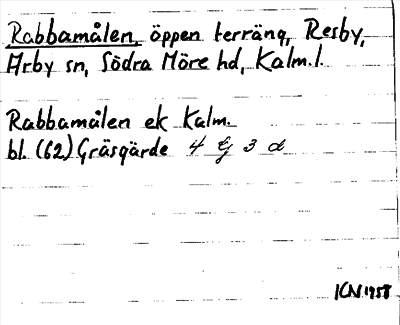 Rabbamålen, öppen terräng, Resby,
Arby sn, Södra Möre hd, Kalm. l.
Rabbamålen ek Kalm.
bl. (62) Gräsgärde 4 G 3 d
ICN 1958